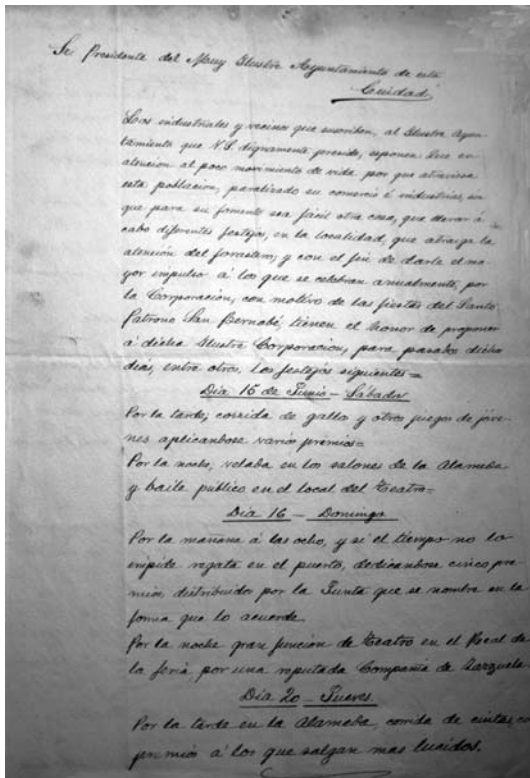 Sr. Presidente del Muy Ilustre Ayuntamiento de esta
Ciudad
Los industriales y vecinos que suscriben, al Ilustre Ayun-
tamiento que V.S. dignamente preside, esponen: Que en
atencion al poco movimiento de vida por que atraviesa
esta poblacion, paralizado su comercio é industrias, sin
que para su fomento sea fácil otra cosa, que llevar á
cabo diferentes festejos, en la localidad, que atraiga la
atención del forastero; y con el fin de darle el ma-
yor impulso á los que se celebran anualmente, por
la Corporación, con motivo de las fiestas del Santo
Patrono San Bernabé, tienen el honor de proponer
á dicha Ilustre Corporación, para pasados dichos
dias, entre otros, los festejos siguientes=
Dia 15 de Junio - Sábado
Por la tarde; corrida de gallos y otros juegos de jóve-
nes aplicandose varios premios=
Por la noche, velada en los salones de la Alameda
y baile público en el local del Teatro=
Dia 16 - Domingo
Por la mañana á las ocho, y si el tiempo no lo
impide regata en el puerto, dedicandose cinco pre-
mios, distribuidos por la Junta que se nombre en la
forma que lo acuerde.
Por la noche gran funcion de Teatro en el Real de
la feria por una reputada Compañia de Zarzuela
Dia 20 - Jueves
Por la tarde en la Alameda, corrida de cintas, co
premios á los que salgan mas lucidos.